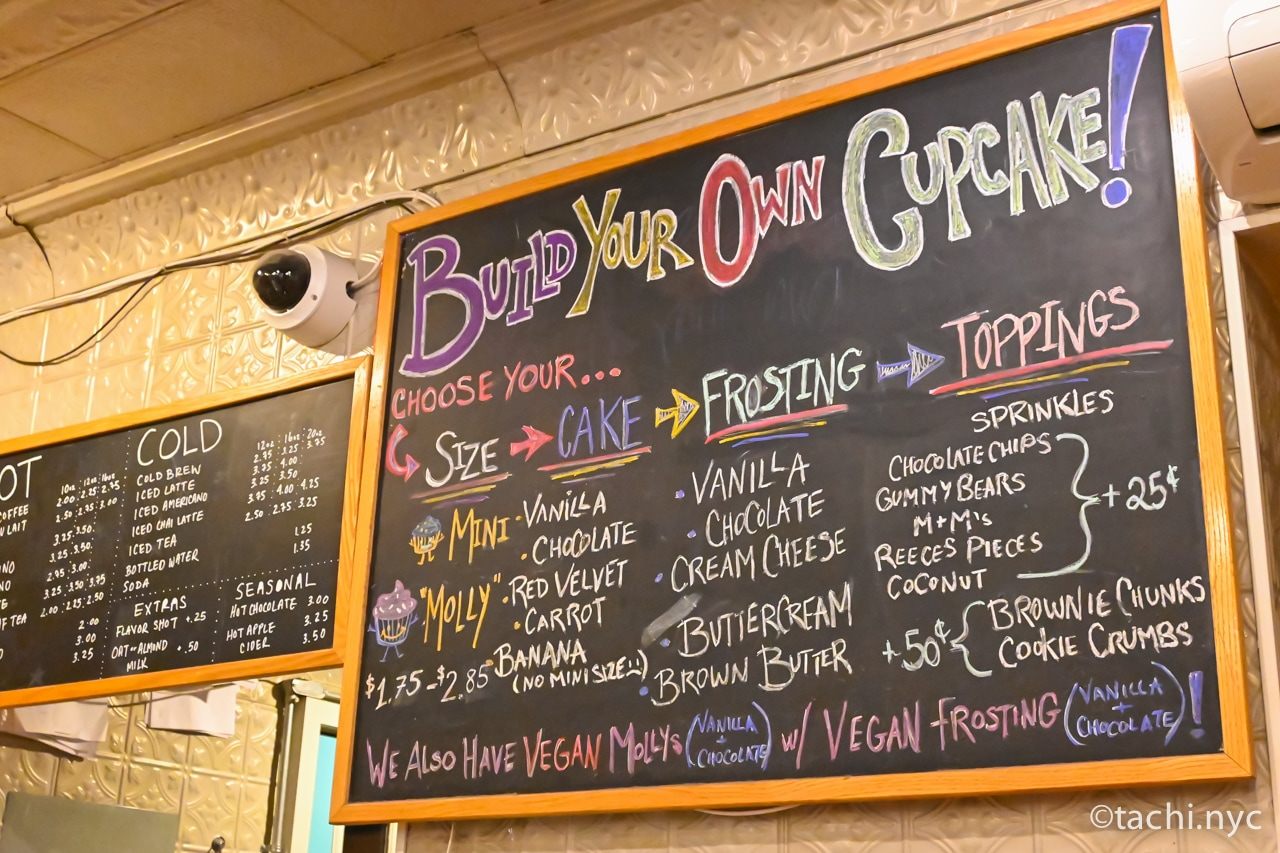 BUILD YOUR OWN CUPCAKE!
CHOOSE YOUR...
SIZE
MINI
"MOLLY"
$1.75-$2.85
CAKE
VANILLA
CHOCOLATE
RED VELVET
CARROT
BANANA
(NO MINI SIZE :()
FROSTING
VANILLA
CHOCOLATE
CREAM CHEESE
BUTTERCREAM
BROWN BUTTER
TOPPINGS
SPRINKLES
CHOCOLATE CHIPS
GUMMY BEARS
M+M's
REECES PIECES
COCONUT
+25¢
+50¢
BROWNIE CHUNKS
COOKIE CRUMBS
WE ALSO HAVE VEGAN MOLLYS (VANILLA + CHOCOLATE) w/ VEGAN FROSTING (VANILLA + CHOCOLATE)!
OT
10oz 12oz 16oz
COFFEE 2.00 2.25 2.75
U LAIT 2.50 2.95
3.25 3.50
3.25 3.50
NO 2.95 3.00
NO 3.25 3.50 3.75
TEA 2.00 2.25 2.50
2.00
3.00
3.25
COLD
12oz 16oz 20oz
COLD BREW 2.75 3.25 3.75
ICED LATTE 3.75 4.00
ICED AMERICANO 3.25 3.50
ICED CHAI LATTE 3.95 4.00 4.25
ICED TEA 2.50 2.75 3.25
BOTTLED WATER 1.25
SODA 1.35
EXTRAS
FLAVOR SHOT +.25
OAT OR ALMOND +.50
MILK
SEASONAL
HOT CHOCOLATE 3.00
HOT APPLE 3.25
CIDER 3.50
©tachi.nyc